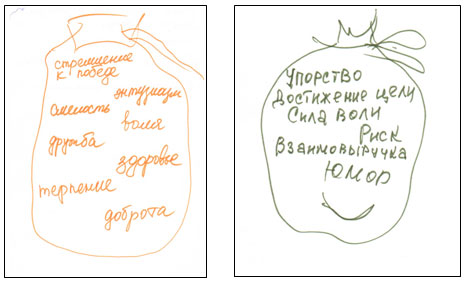 стремление
к победе
энтузиазм
смелость
воля
дружба
здоровье
терпение
доброта
Упорство
Достижение цели
Сила воли
Риск
Взаимовыручка
Юмор